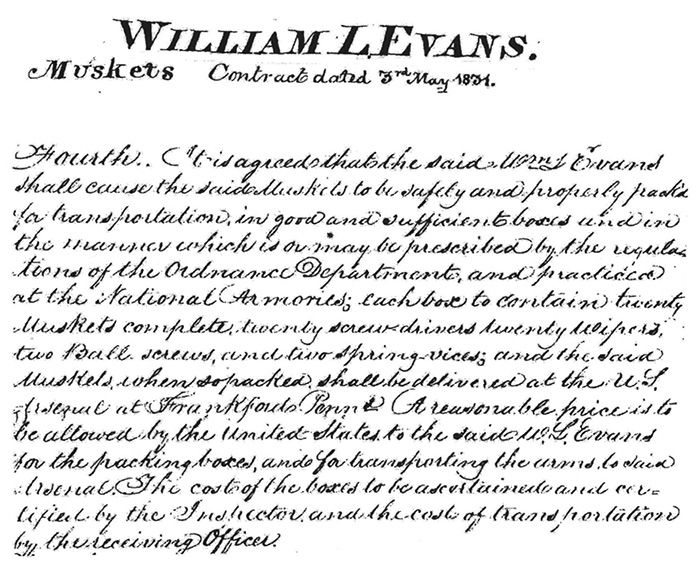 WILLIAM L EVANS.
Muskets Contract dated 3rd May 1831.
Fourth.. It is agreed that the said Wm L Evans
shall cause the said Muskets to be safely and properly pack'd
for transportation, in good and sufficient boxes and in
the manner which is or may be prescribed by the regula-
tions of the Ordnance Department, and practiced
at the National Armories; each box to contain twenty
Muskets complete, twenty screw-drivers twenty Wipers,
two Ball screws, and two spring-vices; and the said
Muskets, when so packed, shall be delivered at the U.S.
Arsenal at Frankford, Penna. A reasonable price is to
be allowed by the United States to the said W. L. Evans
for the packing boxes, and for transporting the arms, to said
Arsenal. The cost of the boxes to be ascertained and cer-
tified by the Inspector, and the cost of transportation
by the receiving Officer.